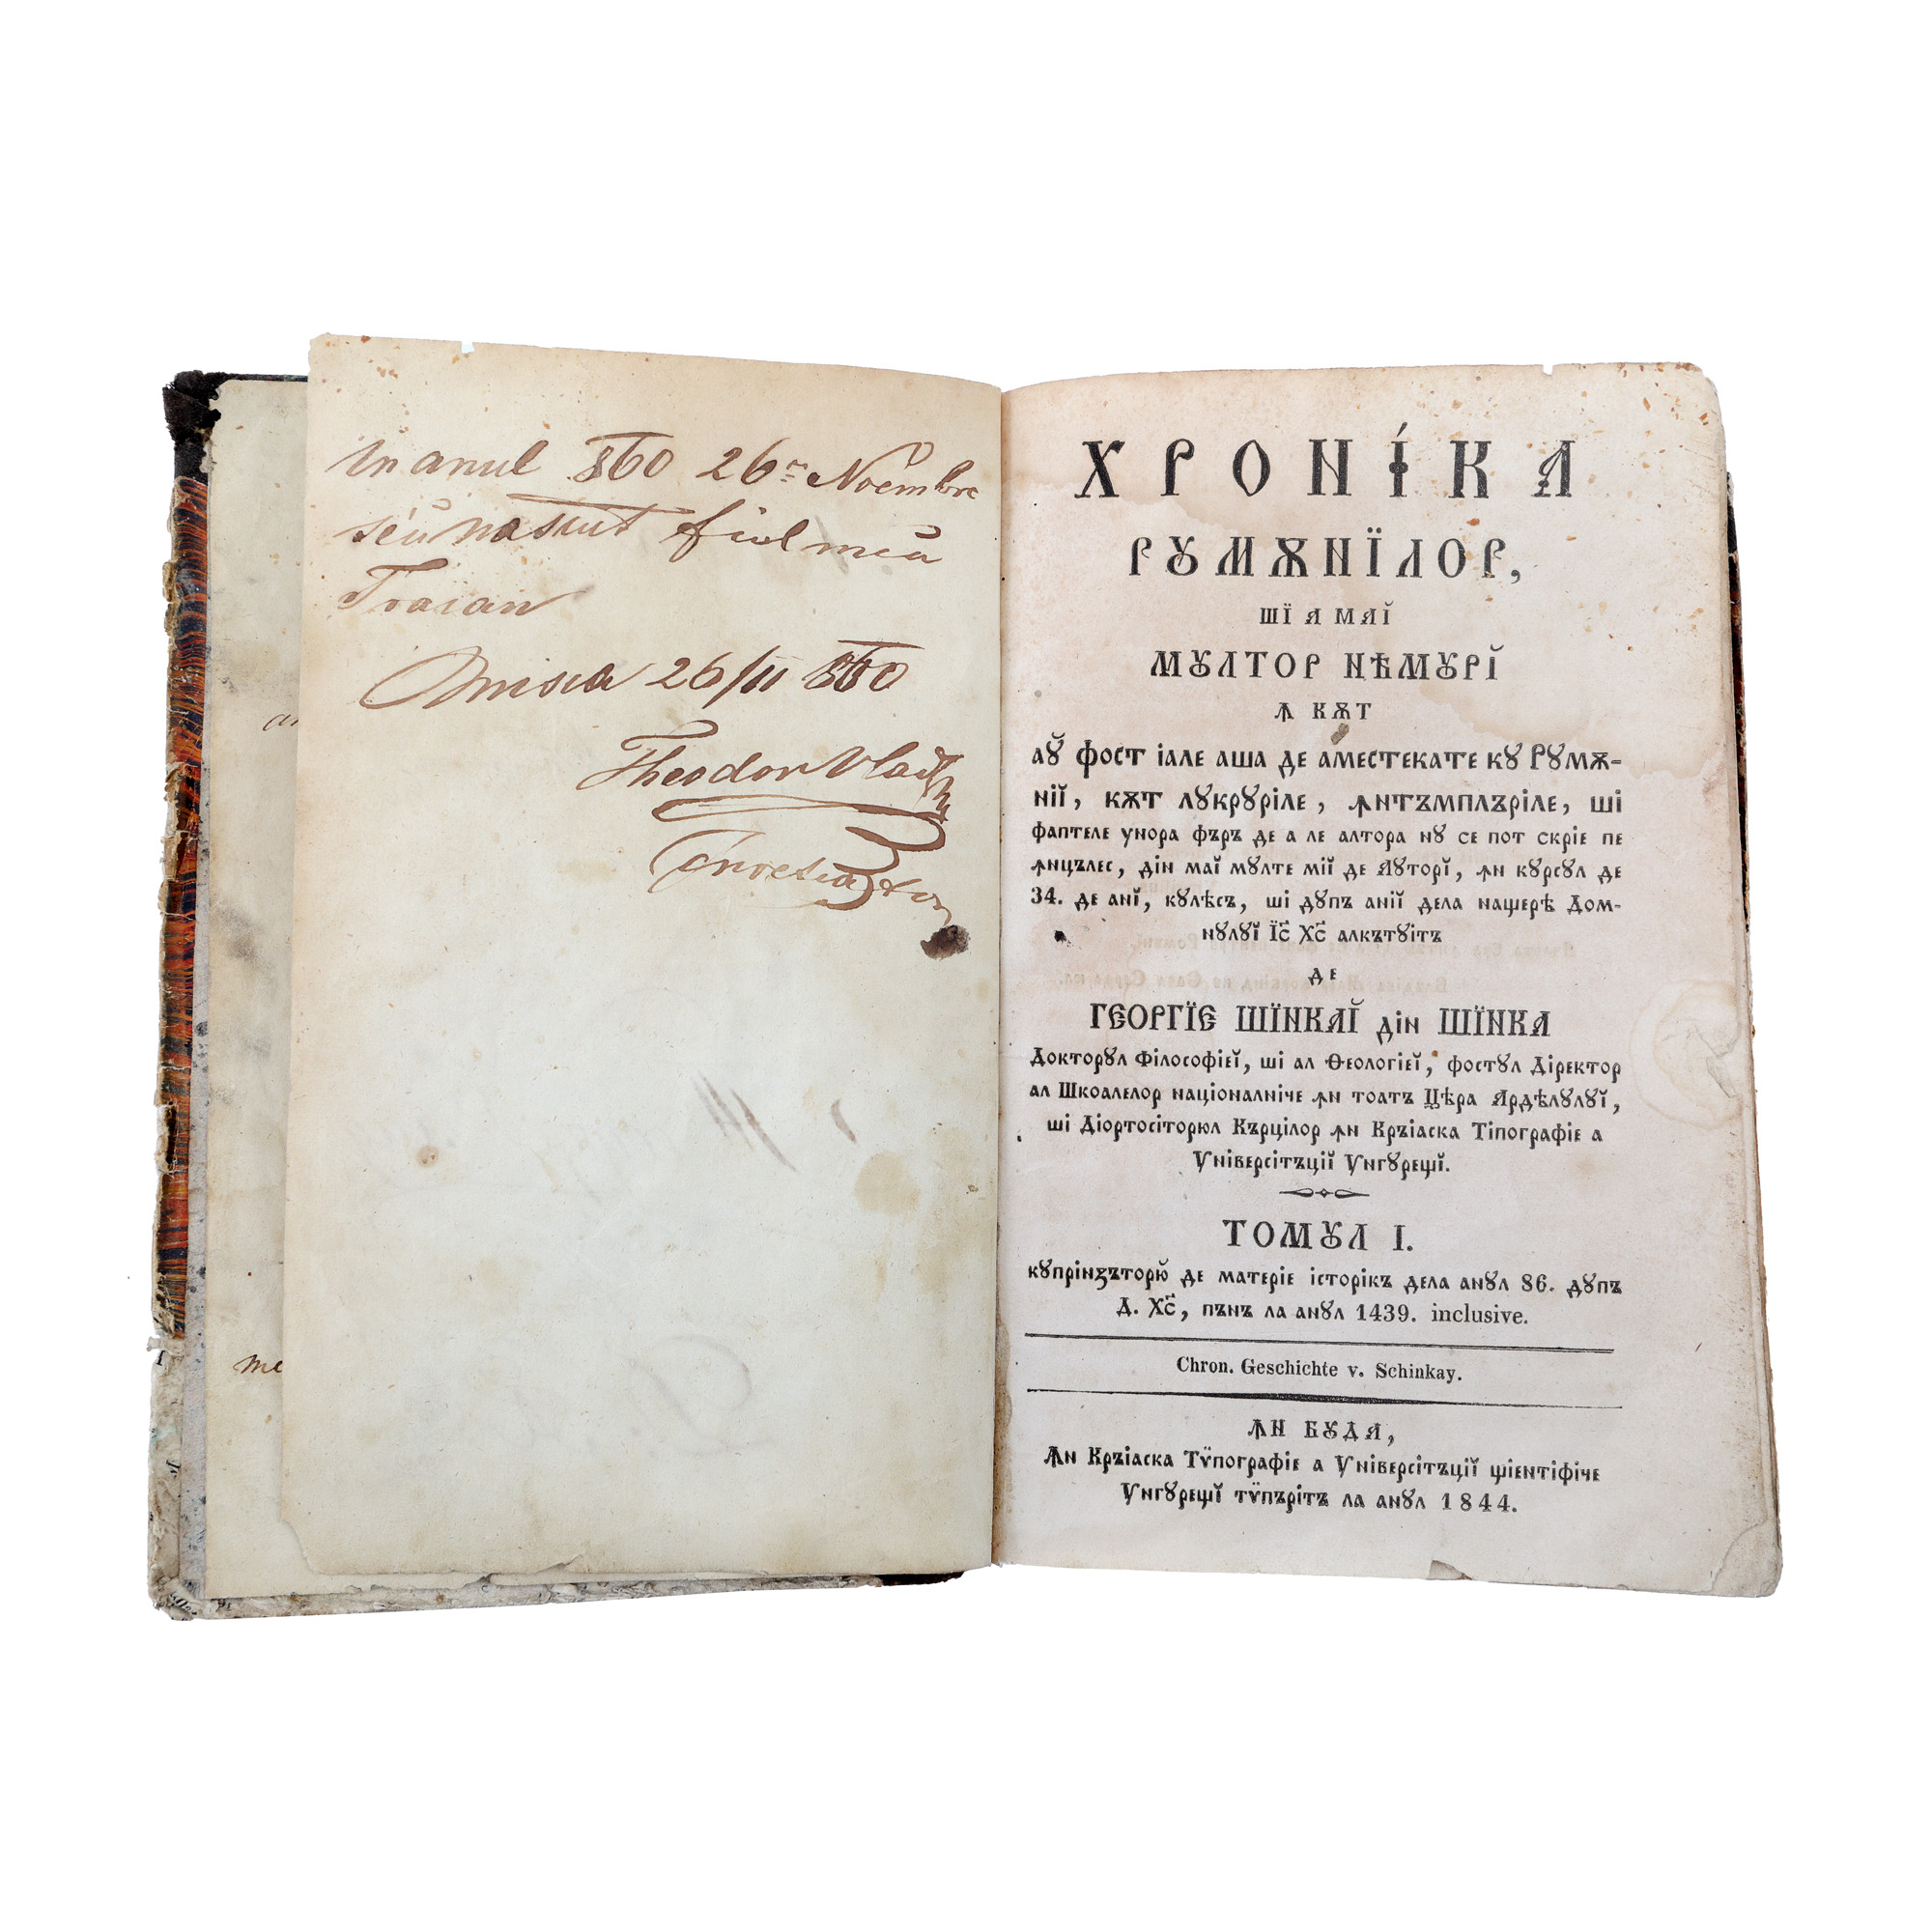 In anul 860 26 Noembre
seŭ nascut fiul meŭ
Traian
26/11 860
Theodor
ХРОНІ́КА
РꙊМѪНЇЛОР,
ШЇ А МАЙ
МꙊЛТОР НѢМꙊРЙ
Ꙟ КѪТ
аꙋ̆ фост іале аша де аместекате кꙋ Рꙋмѫ-
нїй, кѫт лꙋкрꙋріле, ꙟнтъмплъріле, ші
фаптеле унора фъръ де а ле алтора нꙋ се пот скріе пе
ꙟнцълес, дін май мꙋлте мїй де Аꙋторй, ꙟн кꙋрсꙋл де
34. де анй, кꙋлѣсъ, ші дꙋпъ анїй дела нащерѣ Дом-
нꙋлꙋй Їс҃ Хс҃ алкътꙋітъ
де
ГЕОРГЇЕ ШЇНКАЙ дін ШЇНКА
Докторꙋл Філософіей, ші ал Ѳеологіей, фостꙋл Діректор
ал Шкоалелор націоналніче ꙟн тоатъ Цѣра Ардѣлꙋлꙋй,
ші Діортосіторюл Кърцілор ꙟн Кръіаска Тіпографіе а
Універсітъцїй Унгꙋрещй.
ТОМꙊЛ I.
кꙋпрінзъторю̆ де матеріе історікъ дела анꙋл 86. дꙋпъ
Д. Хс҃, пънъ ла анꙋл 1439. inclusive.
Chron. Geschichte v. Schinkay.
ꙞН БꙊДА,
Ꙟн Кръіаска Тѷпографіе а Універсітъцїй щіентіфіче
Унгꙋрещй тѷпърітъ ла анꙋл 1844.